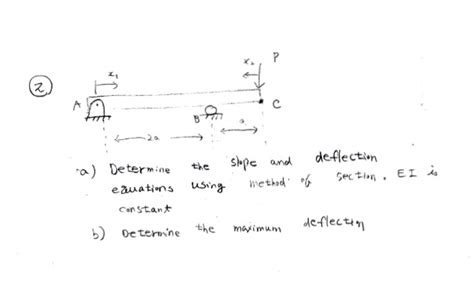 2
x₁
x₂
P
A
B
C
2a
a
a) Determine the slope and deflection
equations using method of section. EI is
constant
b) Determine the maximum deflection